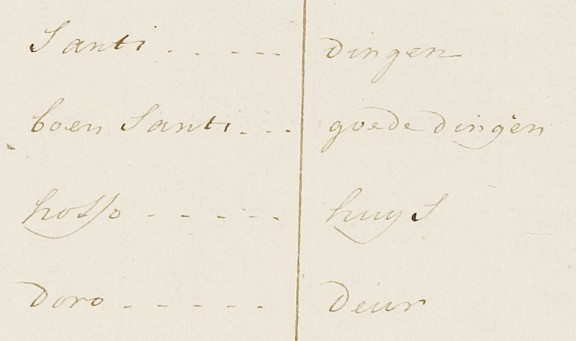 Santi . . - - - - dingen
boen Santi . . - - goede dingen
hosso - - - - - huys
doro - - - - - - deur